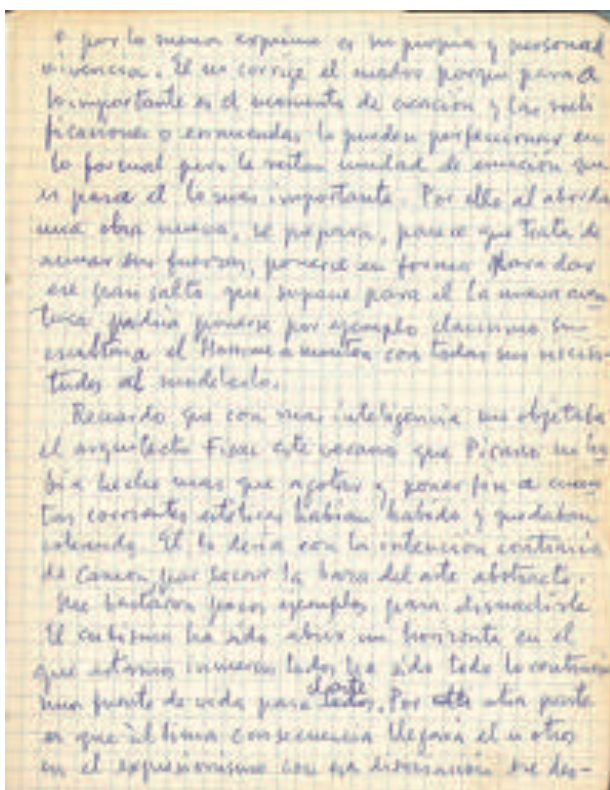 o por lo menos exprime es su propia y personal
vivencia. El no corrige el modo porque para él
lo importante es el momento de creación y las recti
ficaciones o enmiendas lo pueden perfeccionar en
lo formal pero le restan unidad de emoción que
es para él lo mas importante. Por ello al abordar
una obra nueva, se prepara, parece que trata de
sus fuerzas, ponerse en forma para dar
ese gran salto que supone para el la nueva aven
tura podria ponerse por ejemplo clarisimo en
escultura el Homme a mouton con todas sus vicisi
tudes al modelarlo.
Recuerdo que con mas inteligencia me objetaba
el arquitecto este verano que Picasso no ha
bia hecho mas que agotar y poner fin a cuan
tas corrientes esteticas habian habido y quedaban
El lo decia con la intencion contraria
de Camon por sacar la baza del arte abstracto.
Me bastaron pocos ejemplos para disuadirle
El cubismo ha sido abrir un horizonte en el
que estamos inmersos todos ha sido todo lo contrario
una fuente de vida para todos. Por otra parte
es que última consecuencia llegará el u otros
en el expresionismo con